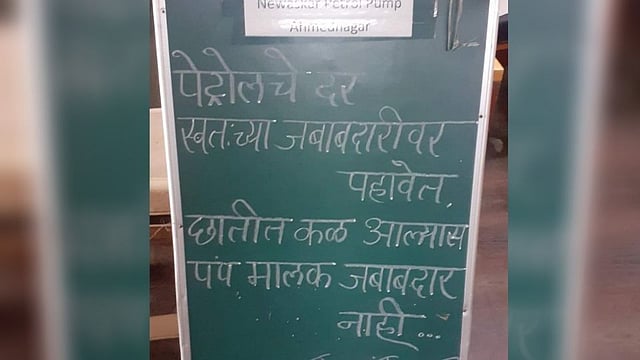 Newaskar Petrol Pump
Ahmednagar
पेट्रोलचे दर
स्वतःच्या जबाबदारीवर
पहावेत
छातीत कळ आल्यास
पंप मालक जबाबदार
नाही ...